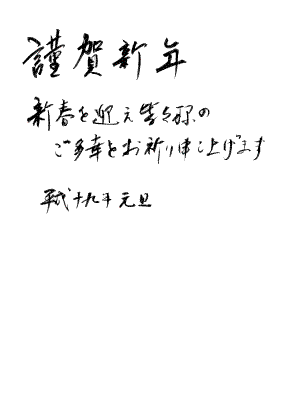 謹賀新年
新春を迎え皆々様の
ご多幸をお祈り申し上げます
平成十九年 元旦